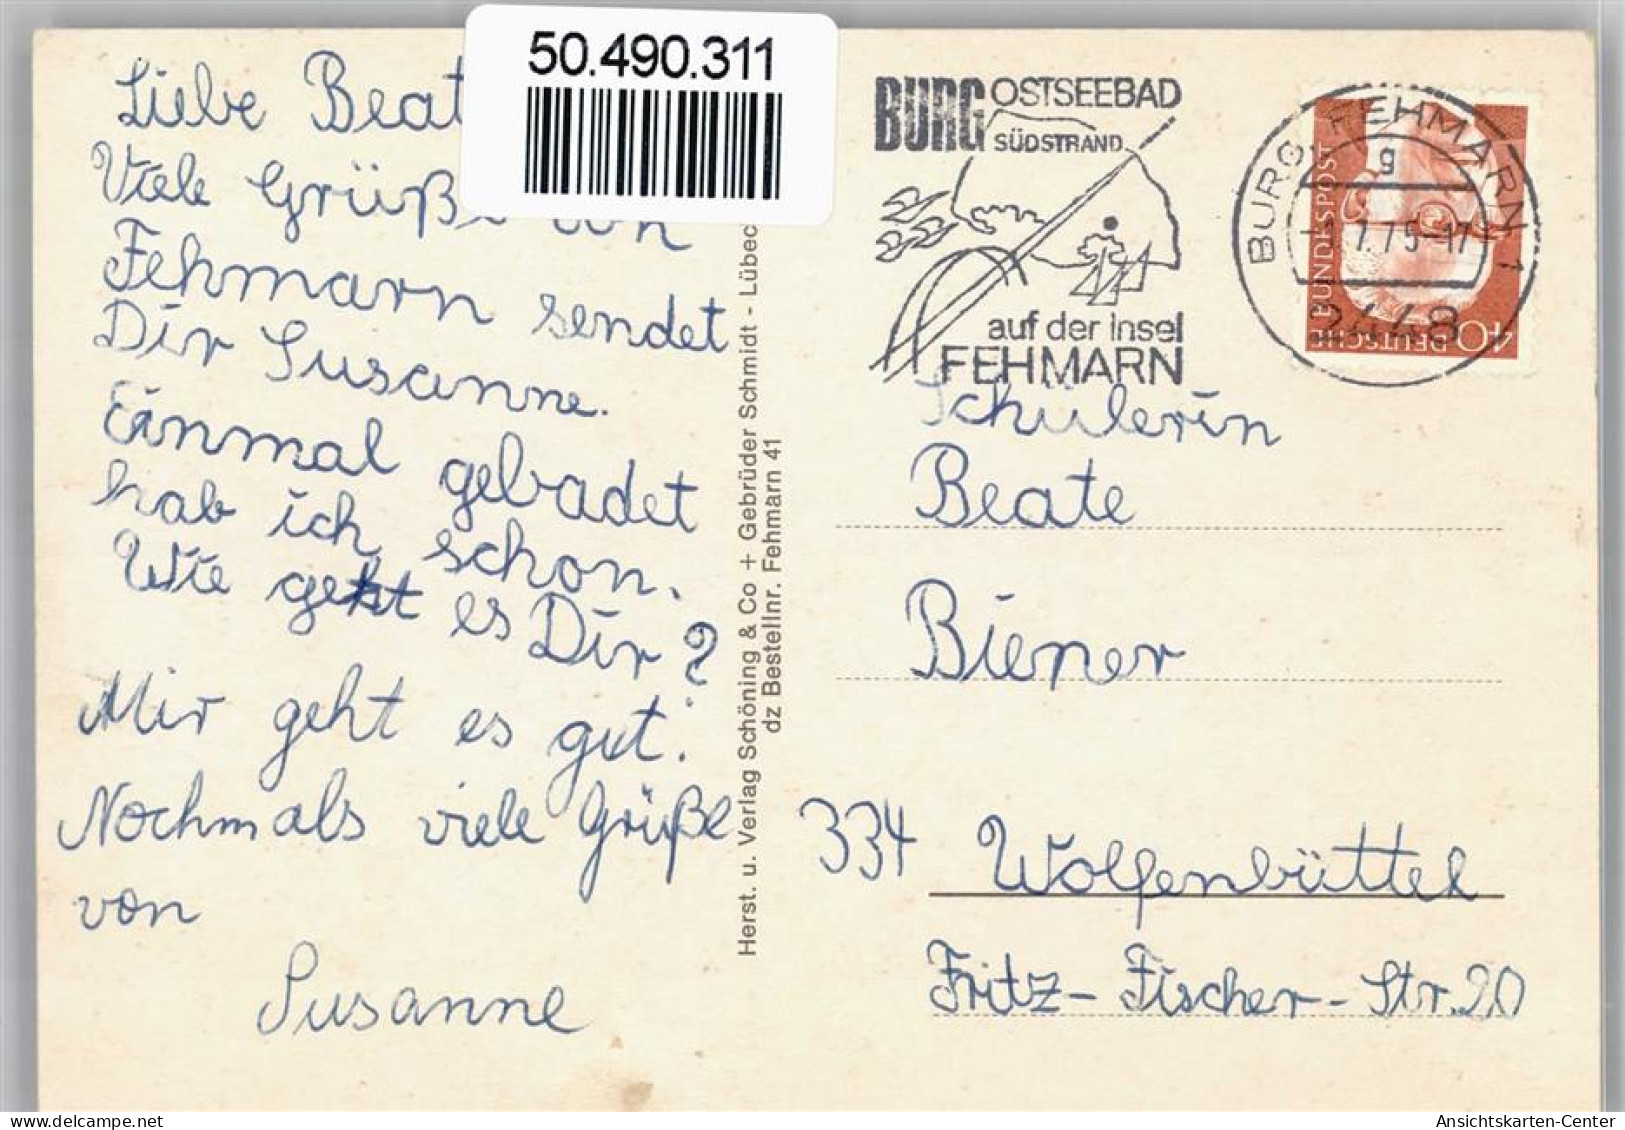 50.490.311
Liebe Beat
Viele Grüße von
Fehmarn sendet
Dir Susanne.
Einmal gebadet
hab ich schon.
Wie geht es Dir?
Mir geht es gut!
Nochmals viele Grüße
von
Susanne
Herst. u. Verlag Schöning & Co + Gebrüder Schmidt - Lübec
dz Bestellnr. Fehmarn 41
BURG OSTSEEBAD
SÜDSTRAND
auf der Insel
FEHMARN
BURG FEHMARN 1
g
7.75-17
2448
DEUTSCHE BUNDESPOST
40
Schülerin
Beate
Biener
334 Wolfenbüttel
Fritz-Fischer-Str. 20
Ansichtskarten-Center